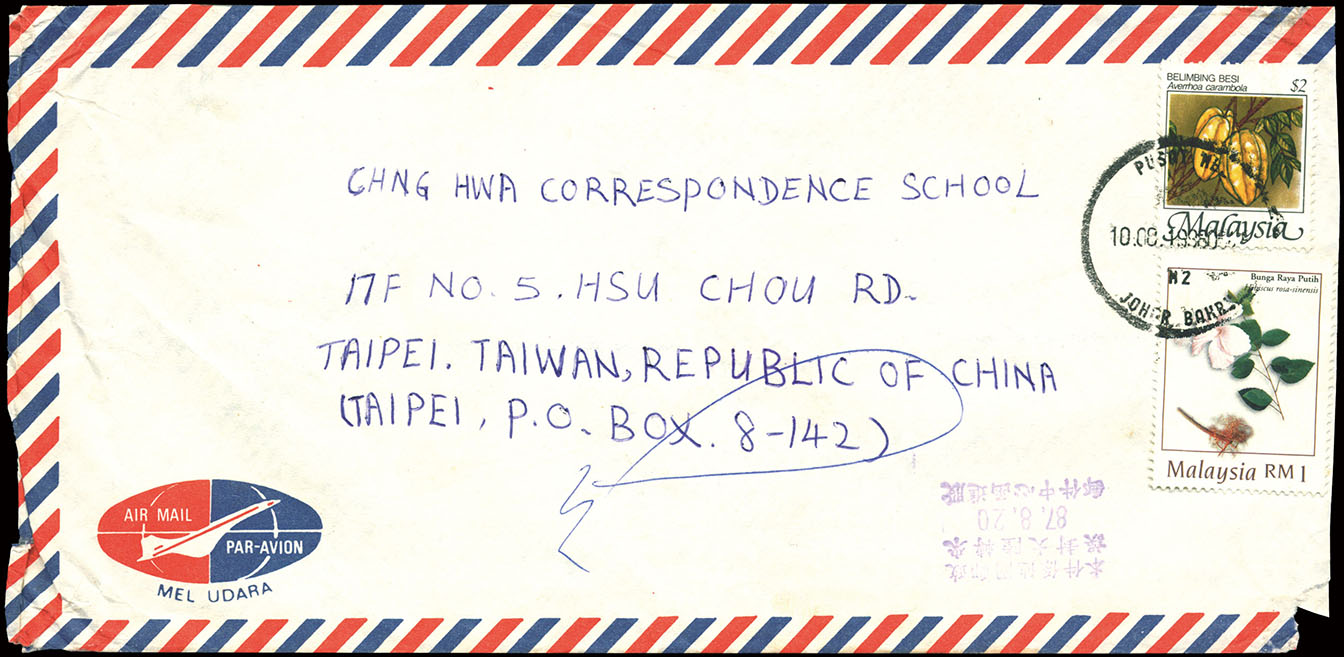 BELIMBING BESI
Averrhoa carambola
$2
Malaysia
CHNG HWA CORRESPONDENCE SCHOOL
17F NO. 5. HSU CHOU RD.
TAIPEI. TAIWAN, REPUBLIC OF CHINA
(TAIPEI, P.O. BOX. 8-142)
Bunga Raya Putih
Hibiscus rosa-sinensis
Malaysia RM 1
M2
JOHOR BAKRI
AIR MAIL
PAR-AVION
MEL UDARA
87.8.20
郵件中心